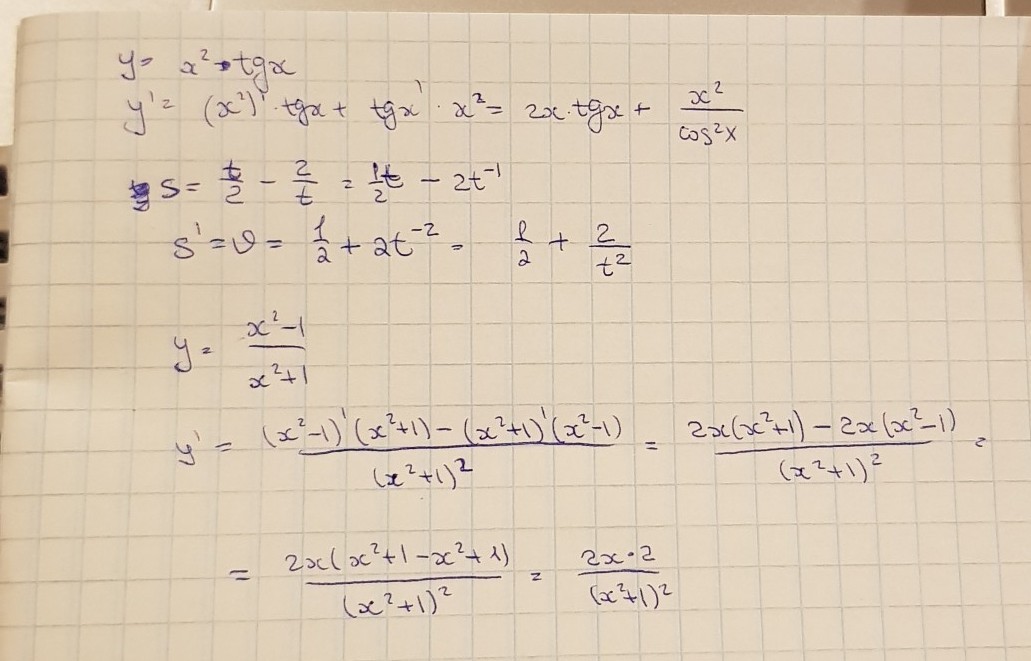 y = x² · tgx
y' = (x²)' · tgx + tgx' · x² = 2x · tgx + x²/cos²x
S = t/2 - 2/t = 1t/2 - 2t⁻¹
S' = υ = 1/2 + 2t⁻² = 1/2 + 2/t²
y = (x²-1)/(x²+1)
y' = ((x²-1)'(x²+1) - (x²+1)'(x²-1))/(x²+1)² = (2x(x²+1) - 2x(x²-1))/(x²+1)² =
= (2x(x²+1-x²+1))/(x²+1)² = (2x·2)/(x²+1)²